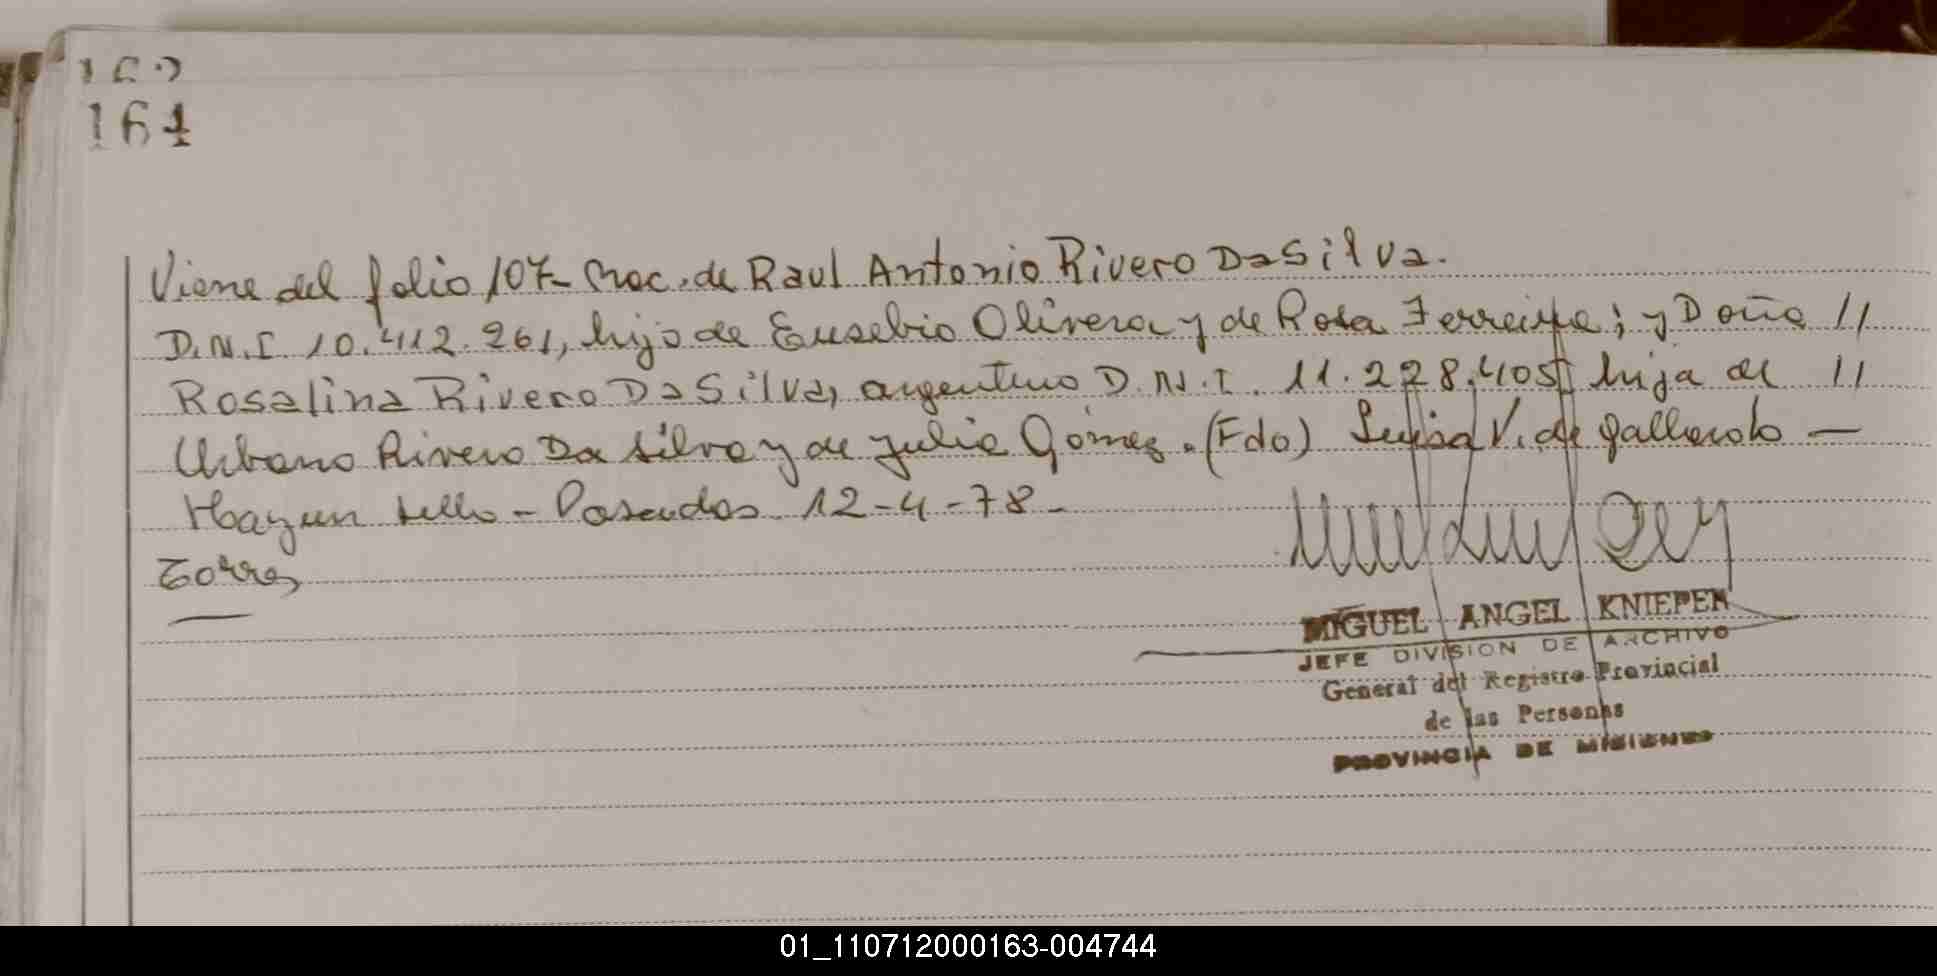 164
Viene del folio 107- Nac. de Raul Antonio Rivero DaSilva.
D.N.I. 10.412.261, hijo de Eusebio Olivera y de Rosa Ferreira; y Doña //
Rosalina Rivero DaSilva, argentino D.N.I. 11.228.405 hija de //
Urbano Rivero Da Silva y de Julia Gómez. (Fdo) Luisa V. de Gallardo —
Hay un sello - Posadas 12-4-78-
Torres
MIGUEL ANGEL KNIEPER
JEFE DIVISION DE ARCHIVO
General del Registro Provincial
de las Personas
PROVINCIA DE MISIONES
01_110712000163-004744